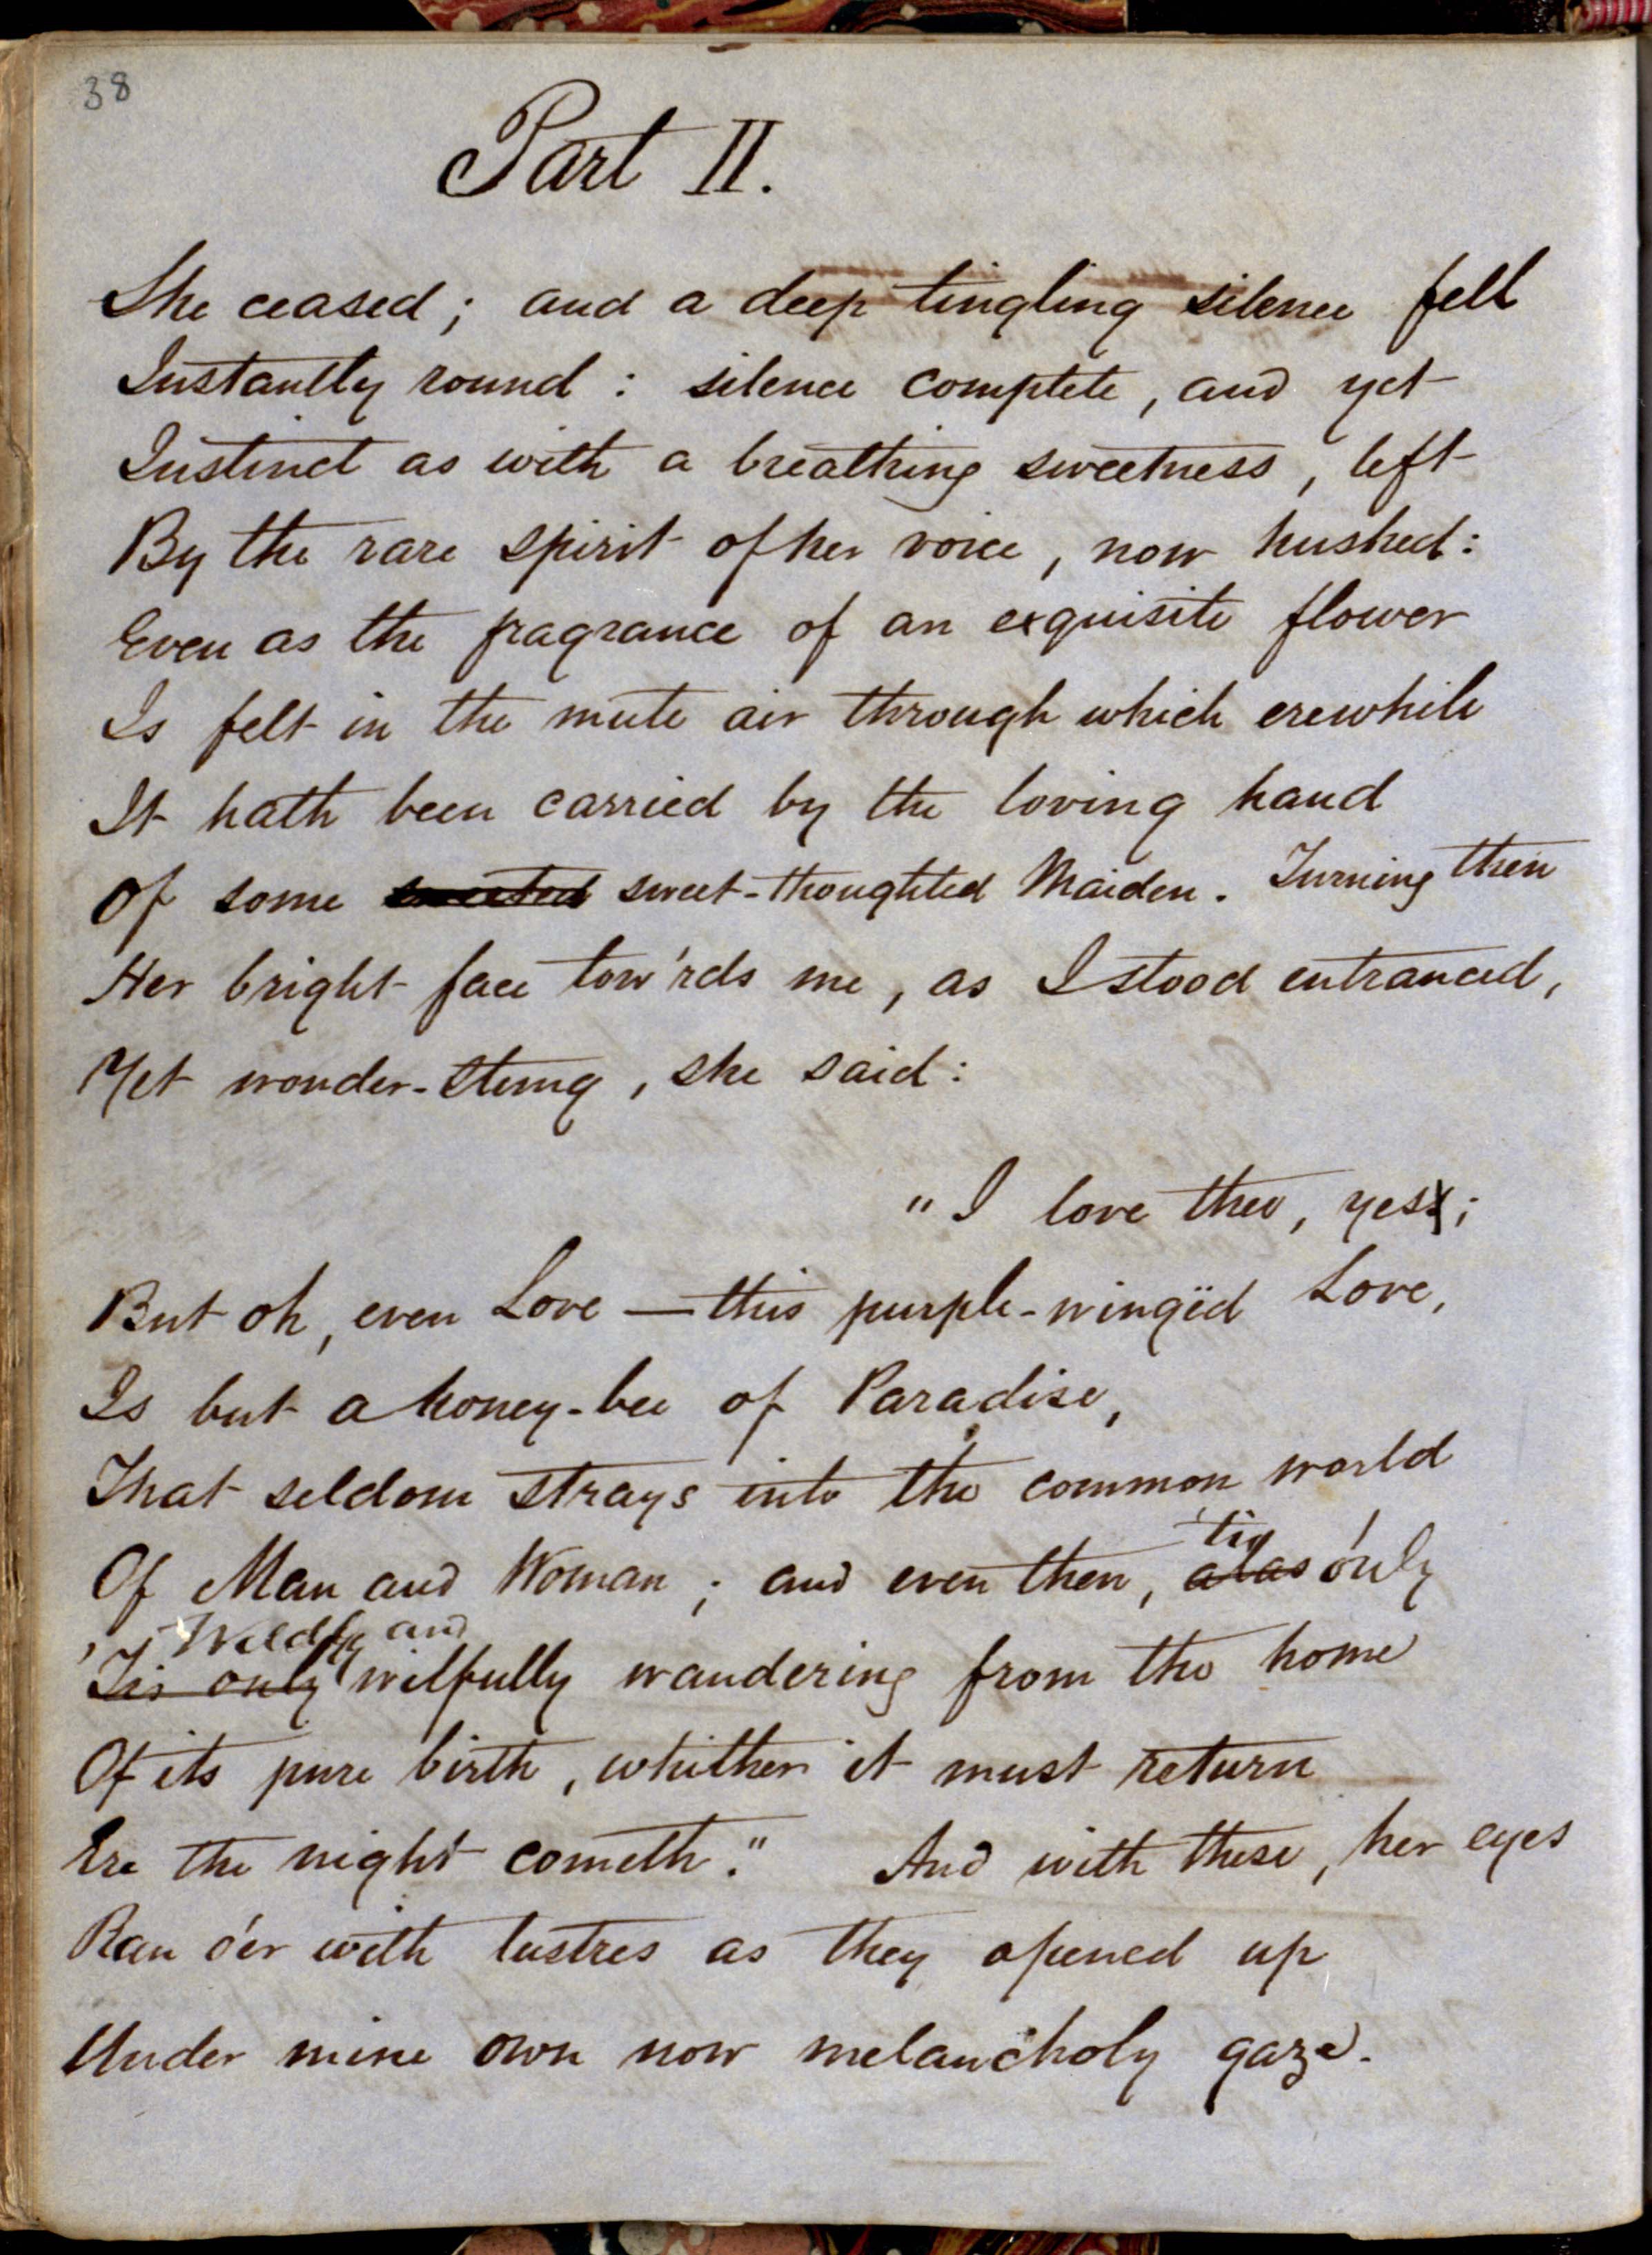 38
Part II.
She ceased; and a deep tingling silence fell
Instantly round: silence complete, and yet
Instinct as with a breathing sweetness, left
By the rare spirit of her voice, now hushed:
Even as the fragrance of an exquisite flower
Is felt in the mute air through which erewhile
It hath been carried by the loving hand
Of some sweet-thoughted Maiden. Turning then
Her bright face tow'rds me, as I stood entranced,
Yet wonder-stung, she said:
"I love thee, yes;
But oh, even Love — this purple-wingëd Love,
Is but a honey-bee of Paradise,
That seldom strays into the common world
'tis
Of Man and Woman; and even then, alas only
Wildly and
'Tis only wilfully wandering from the home
Of its pure birth, whither it must return
Ere the night cometh." And with these, her eyes
Ran o'er with lustres as they opened up
Under mine own now melancholy gaze.